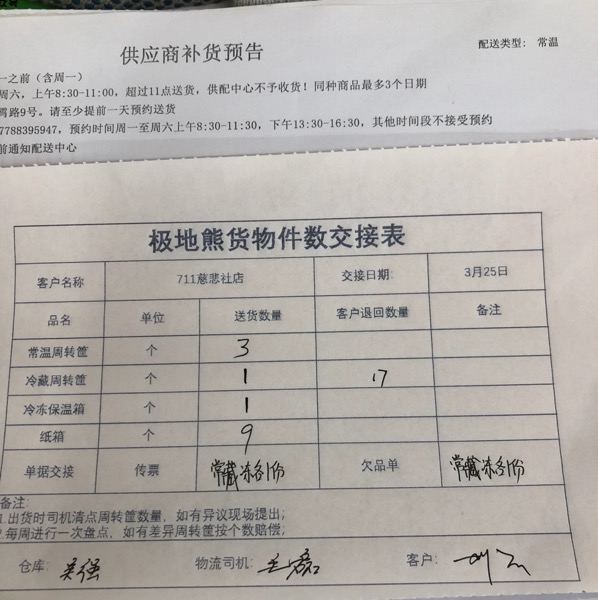 供应商补货预告
配送类型: 常温
一之前（含周一）
周六，上午8:30-11:00，超过11点送货，供配中心不予收货！同种商品最多3个日期
路9号。请至少提前一天预约送货
7788395947，预约时间周一至周六上午8:30-11:30，下午13:30-16:30，其他时间段不接受预约
前通知配送中心
极地熊货物件数交接表
客户名称 711慈悲社店 交接日期: 3月25日
品名 单位 送货数量 客户退回数量 备注
常温周转筐 个 3
冷藏周转筐 个 1 17
冷冻保温箱 个 1
纸箱 个 9
单据交接 传票 常藏冻各1份 欠品单 常藏冻各1份
备注:
1.出货时司机清点周转筐数量，如有异议现场提出;
2.每周进行一次盘点，如有差异周转筐按个数赔偿;
仓库: 吴强 物流司机: 客户: